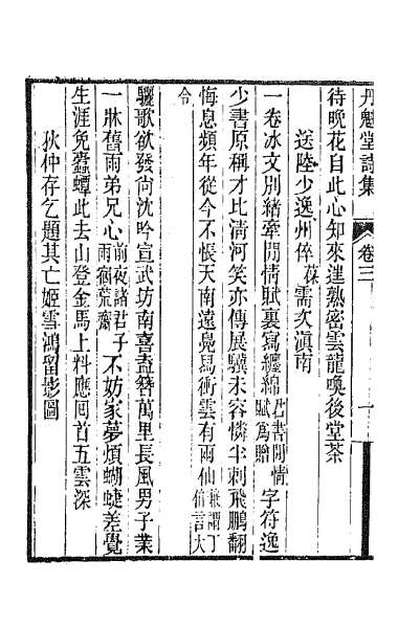 丹魁堂詩集　卷三　一
待晚花自此心知來達熟密雲龍喚後堂茶
送陸少逸州倅葆需次滇南
一卷冰文別緒牽閒情賦裏寫纏綿君書閒情賦爲贈字符逸
少書原稱才比清河笑亦傳展驥未容憐半刺飛鵬翻
悔息頻年從今不悵天南遠鳧舄衝雲有兩仙兼謂丁伯言大
令
驪歌欲發尙沈吟宣武坊南喜盍簪萬里長風男子業
一牀舊雨弟兄心前夜諸君子雨宿荒齋不妨家夢煩蝴蜨差覺
生涯免蠹蟫此去山登金馬上料應回首五雲深
狄仲存乞題其亡姬雪鴻留影圖